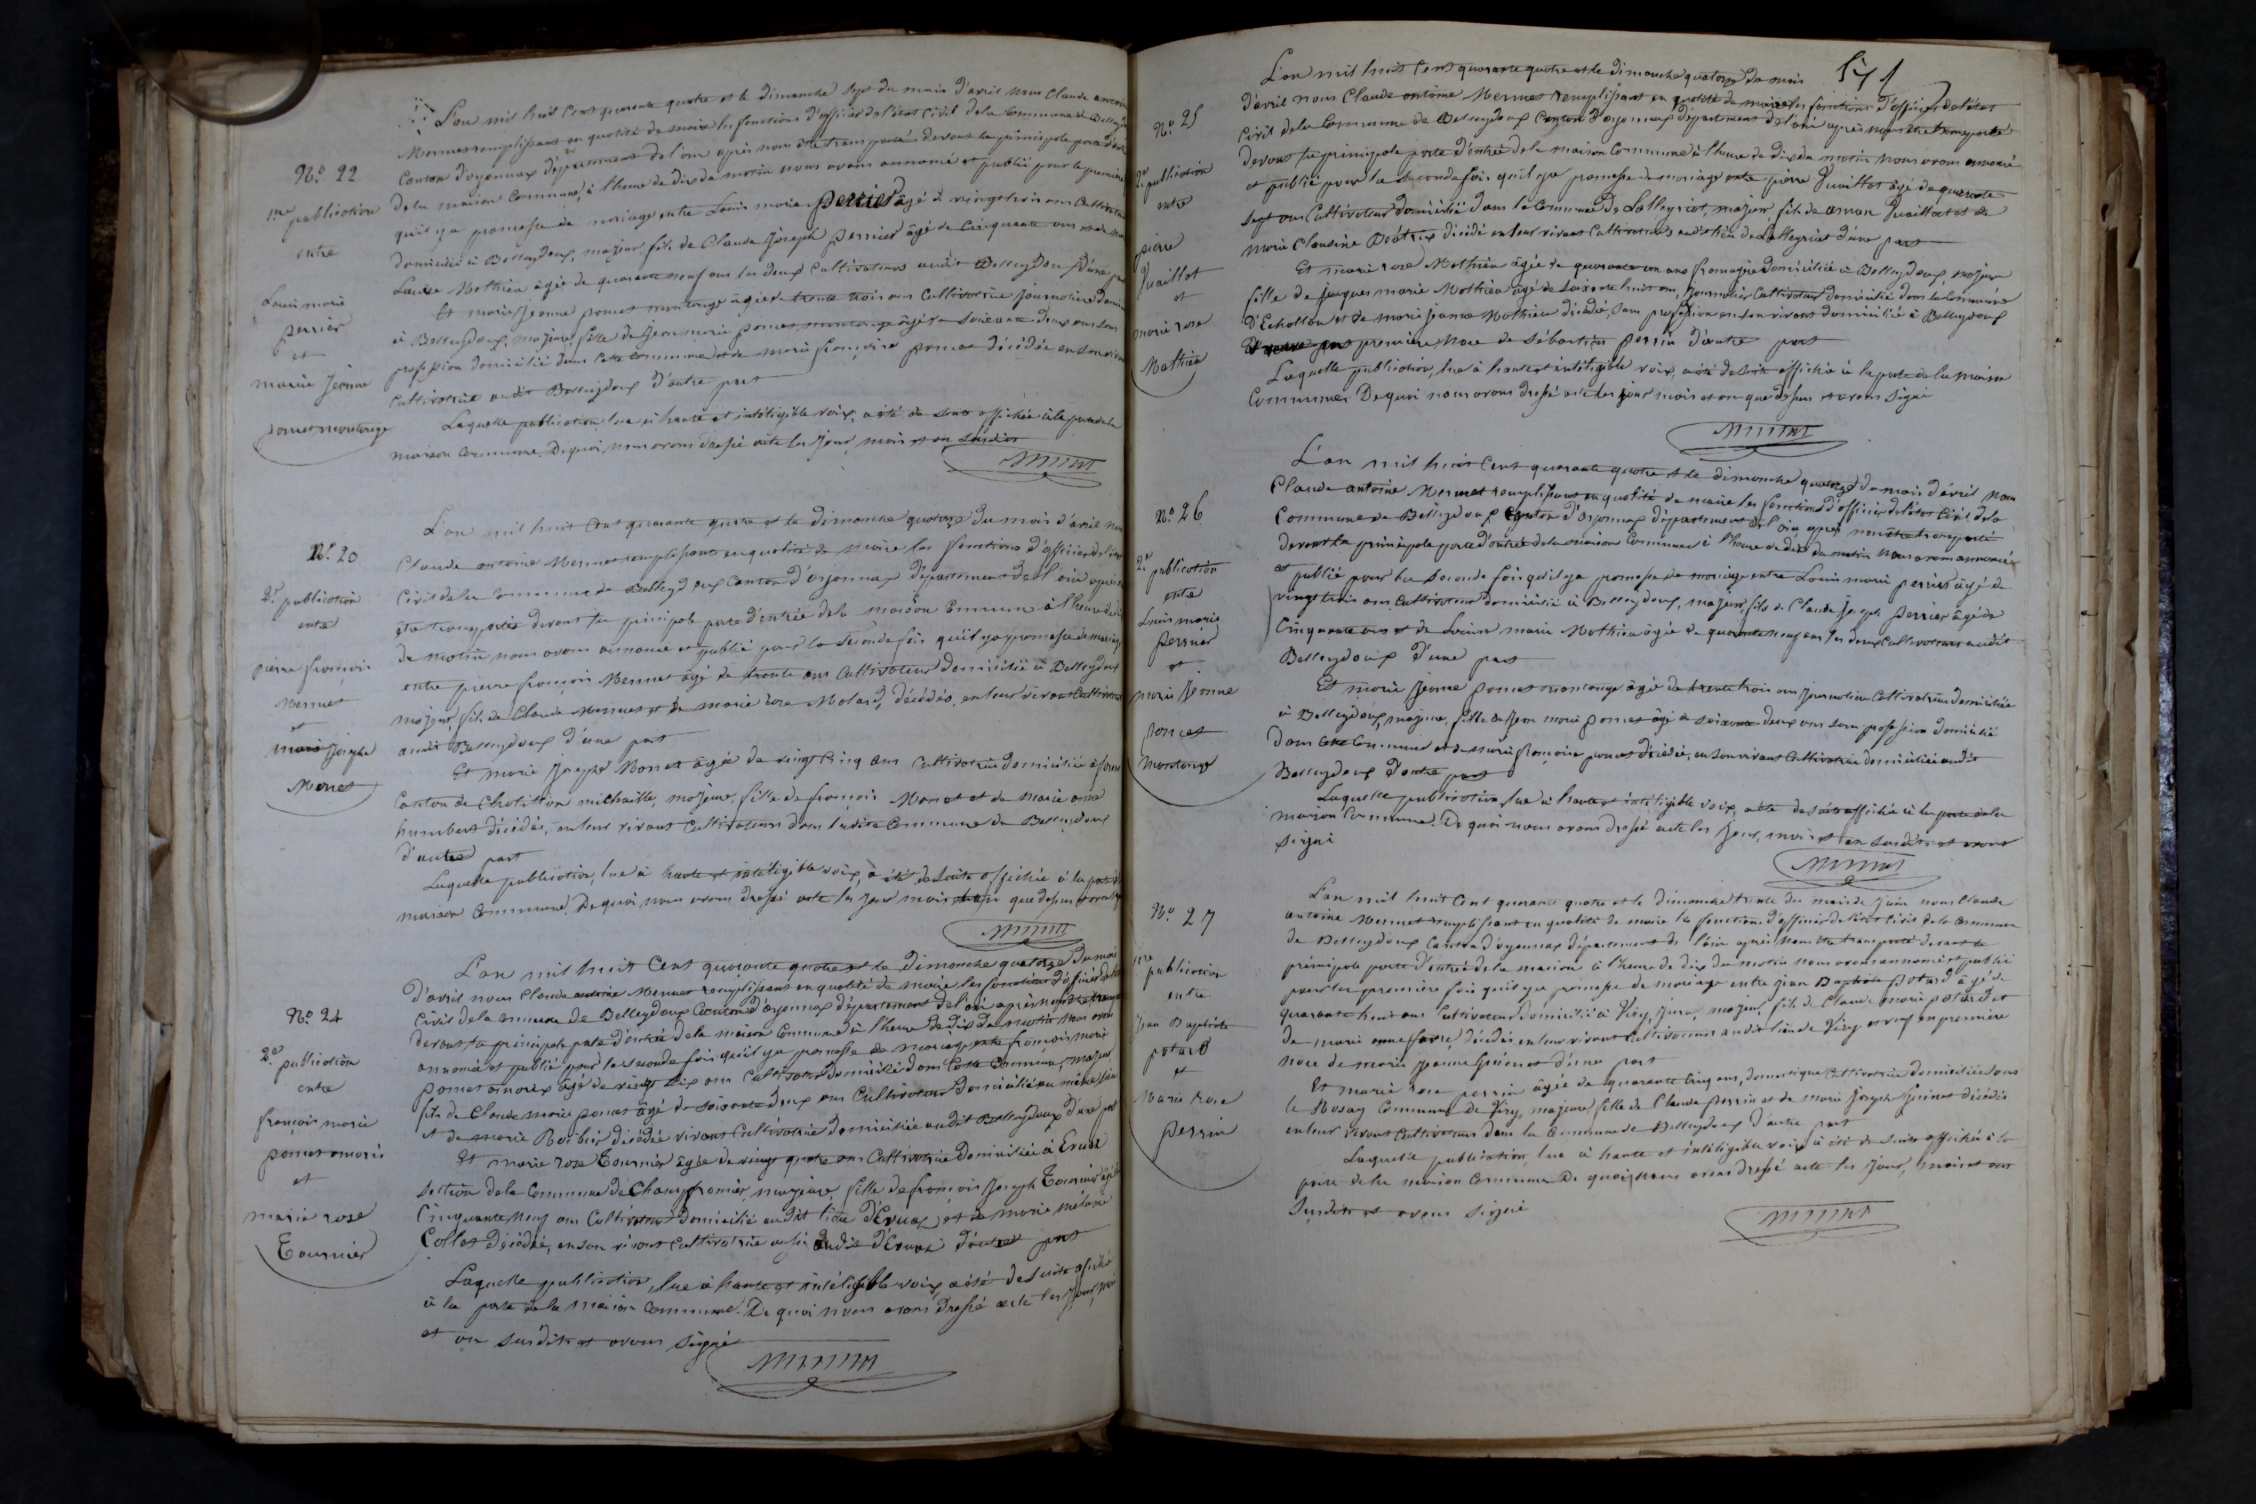 N.º 22
1re publication
entre
Louis marie
perrier
et
marie Jeanne
poncet montange
L'an mil huit Cent quarante quatre et le dimanche sept du mois d'avril nous Claude antoine
Mermet remplissant en qualité de maire les fonctions d'officier de l'état Civil de la Commune de Belleydoux
Canton d'oyonnax département de l'ain après nous être transporté devant la principale porte d'entrée
de la maison Commune, à l'heure de dix du matin nous avons annoncé et publié pour la première
qu'il y a promesse de mariage entre Louis marie perrier âgé de vingt trois ans Cultivateur
domicilié à Belleydoux, majeur, fils de Claude Joseph perrier âgé de Cinquante ans et de
Louise Mathieu âgée de quarante neuf ans les deux Cultivateurs audit Belleydoux d'une part
Et marie Jeanne poncet montange âgée de trente trois ans Cultivatrice Journalière
à Belleydoux, majeure, fille de Jean marie poncet montange âgé de soixante deux ans sans
profession domicilié dans Cette Commune et de marie françoise poncet décédée en son vivant
Cultivatrice audit Belleydoux d'autre part
Laquelle publication lue à haute et intelligible voix, a été de suite affichée à la porte de la
maison Commune. De quoi nous avons dressé acte les Jour, mois et an susdits
N.º 23
2e publication
entre
pierre françois
Mermet
et
marie Josephe
Monet
L'an mil huit Cent quarante quatre et le dimanche quatorze du mois d'avril nous
Claude antoine Mermet remplissant en qualité de maire les fonctions d'officier de l'état
Civil de la Commune de Belleydoux Canton d'oyonnax département de l'ain après
être transporté devant la principale porte d'entrée de la maison Commune à l'heure de dix
du matin nous avons annoncé et publié pour la seconde fois qu'il y a promesse de mariage
entre pierre françois Mermet âgé de trente ans Cultivateur domicilié à Belleydoux
majeur, fils de Claude Mermet et de marie rose Molard, décédés, en leur vivant Cultivateurs
audit Belleydoux d'une part
Et marie Joseph Monet âgée de vingt Cinq ans Cultivatrice domiciliée à
Canton de Chatillon michaille, majeure, fille de françois Monet et de marie
humbert décédés, en leur vivant Cultivateurs dans ladite Commune de Belleydoux
d'autre part
Laquelle publication, lue à haute et intelligible voix, a été de suite affichée à la porte de la
maison Commune. De quoi nous avons dressé acte les Jour mois et an que dessus
N.º 24
2e publication
entre
françois marie
poncet
et
marie rose
Tournier
L'an mil huit Cent quarante quatre et le dimanche quatorze du mois
d'avril nous Claude antoine Mermet remplissant en qualité de maire les fonctions d'officier de l'état
Civil de la Commune de Belleydoux Canton d'oyonnax département de l'ain après nous être
devant la principale porte d'entrée de la maison Commune à l'heure de dix du matin nous avons
annoncé et publié pour la seconde fois qu'il y a promesse de mariage entre françois marie
poncet âgé de vingt six ans Cultivateur domicilié dans Cette Commune, majeur
fils de Claude marie poncet âgé de soixante deux ans Cultivateur domicilié au même lieu
et de marie Barbier décédée vivant Cultivatrice domiciliée audit Belleydoux d'une part
Et marie rose Tournier âgée de vingt quatre ans Cultivatrice domiciliée à Evuaz
section de la Commune de Champfromier, majeure, fille de françois Joseph Tournier âgé
Cinquante neuf ans Cultivateur domicilié audit lieu d'Evuaz, et de marie
décédée, en son vivant Cultivatrice audit d'Evuaz d'autre part
Laquelle publication, lue à haute et intelligible voix, a été de suite affichée
à la porte de la maison Commune. De quoi nous avons dressé acte les Jour, mois
et an susdits et avons signé
171
N.º 25
2e publication
entre
pierre
Juaillat
et
marie rose
Mathieu
L'an mil huit Cent quarante quatre et le dimanche quatorze du mois
d'avril nous Claude antoine Mermet remplissant en qualité de maire les fonctions d'officier de l'état
Civil de la Commune de Belleydoux Canton d'oyonnax département de l'ain après nous être transporté
devant la principale porte d'entrée de la maison Commune à l'heure de dix du matin nous avons annoncé
et publié pour la seconde fois qu'il y a promesse de mariage entre pierre Juaillat âgé de quarante
sept ans Cultivateur domicilié dans la Commune de Lalleyriat, majeur, fils de Juaillat et de
marie Claudine décédés en leur vivant Cultivateurs audit lieu de Lalleyriat d'une part
Et marie rose Mathieu âgée de quarante un ans domiciliée à Belleydoux, majeure
fille de Jacques marie Mathieu âgé de soixante huit ans, Journalier Cultivateur domicilié dans la Commune
d'Echallon et de marie Jeanne Mathieu décédée, sans profession en son vivant domiciliée à Belleydoux
première Noce de Sébastien perrin d'autre part
Laquelle publication, lue à haute et intelligible voix, a été de suite affichée à la porte de la maison
Commune. De quoi nous avons dressé acte les jour mois et an que dessus et avons signé
N.º 26
2e publication
entre
Louis marie
perrier
et
marie Jeanne
poncet
montange
L'an mil huit Cent quarante quatre et le dimanche quatorze du mois d'avril nous
Claude antoine Mermet remplissant en qualité de maire les fonctions d'officier de l'état Civil de la
Commune de Belleydoux Canton d'oyonnax département de l'ain après nous être transporté
devant la principale porte d'entrée de la maison Commune à l'heure de dix du matin nous avons annoncé
et publié pour la seconde fois qu'il y a promesse de mariage entre Louis marie perrier âgé de
vingt trois ans Cultivateur domicilié à Belleydoux, majeur, fils de Claude Joseph perrier âgé de
Cinquante ans et de Louise marie Mathieu âgée de quarante neuf ans les deux Cultivateurs audit
Belleydoux d'une part
Et marie Jeanne poncet montange âgée de trente trois ans Journalière Cultivatrice domiciliée
à Belleydoux, majeure, fille de Jean marie poncet âgé de soixante deux ans sans profession domicilié
dans Cette Commune et de marie françoise poncet décédée, en son vivant Cultivatrice domiciliée audit
Belleydoux d'autre part
Laquelle publication, lue à haute et intelligible voix, a été de suite affichée à la porte de la
maison Commune. De quoi nous avons dressé acte les Jour, mois et an susdits et avons
signé
N.º 27
1re
publication
entre
Jean Baptiste
potard
et
Marie rose
perrin
L'an mil huit Cent quarante quatre et le dimanche trente du mois de Juin nous Claude
antoine Mermet remplissant en qualité de maire les fonctions d'officier de l'état Civil de la Commune
de Belleydoux Canton d'oyonnax département de l'ain après nous être transporté devant la
principale porte d'entrée de la maison à l'heure de dix du matin nous avons annoncé et publié
pour la première fois qu'il y a promesse de mariage entre Jean Baptiste potard âgé de
quarante huit ans Cultivateur domicilié à Viry, Jura, majeur, fils de Claude marie potard et
de marie décédés, en leur vivant Cultivateurs audit lieu de Viry et veuf en première
noce de marie Jeanne d'une part
Et marie rose perrin âgée de quarante Cinq ans, domestique Cultivatrice domiciliée sous
le Rosay Commune de Viry, majeure, fille de Claude perrin et de marie Joseph décédés
en leur vivant Cultivateurs dans la Commune de Belleydoux d'autre part
Laquelle publication, lue à haute et intelligible voix, a été de suite affichée à la
porte de la maison Commune. De quoi, nous avons dressé acte les Jour, mois et an
susdits et avons signé